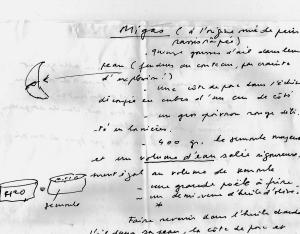 Migas (à l'origine mie de pain
rassis râpée)
- quatre gousses d'ail dans leur
peau (fendues au couteau, par crainte
d'explosion!)
- une côte de porc dans l'échine
découpée en cubes d'un cm de côté
- un gros poivron rouge déta-
té en lanières.
- 400 gr. de semoule moyenne
et un volume d'eau salée rigoureuse
ment égal au volume de semoule
- une grande poêle à frire
- un demi-verre d'huile d'olive.
H2O = semoule
Faire revenir dans l'huile chaude
l'ail dans sa peau, la côte de porc et